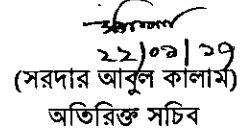 ২২/০৯/১৭
(সরদার আবুল কালাম)
অতিরিক্ত সচিব